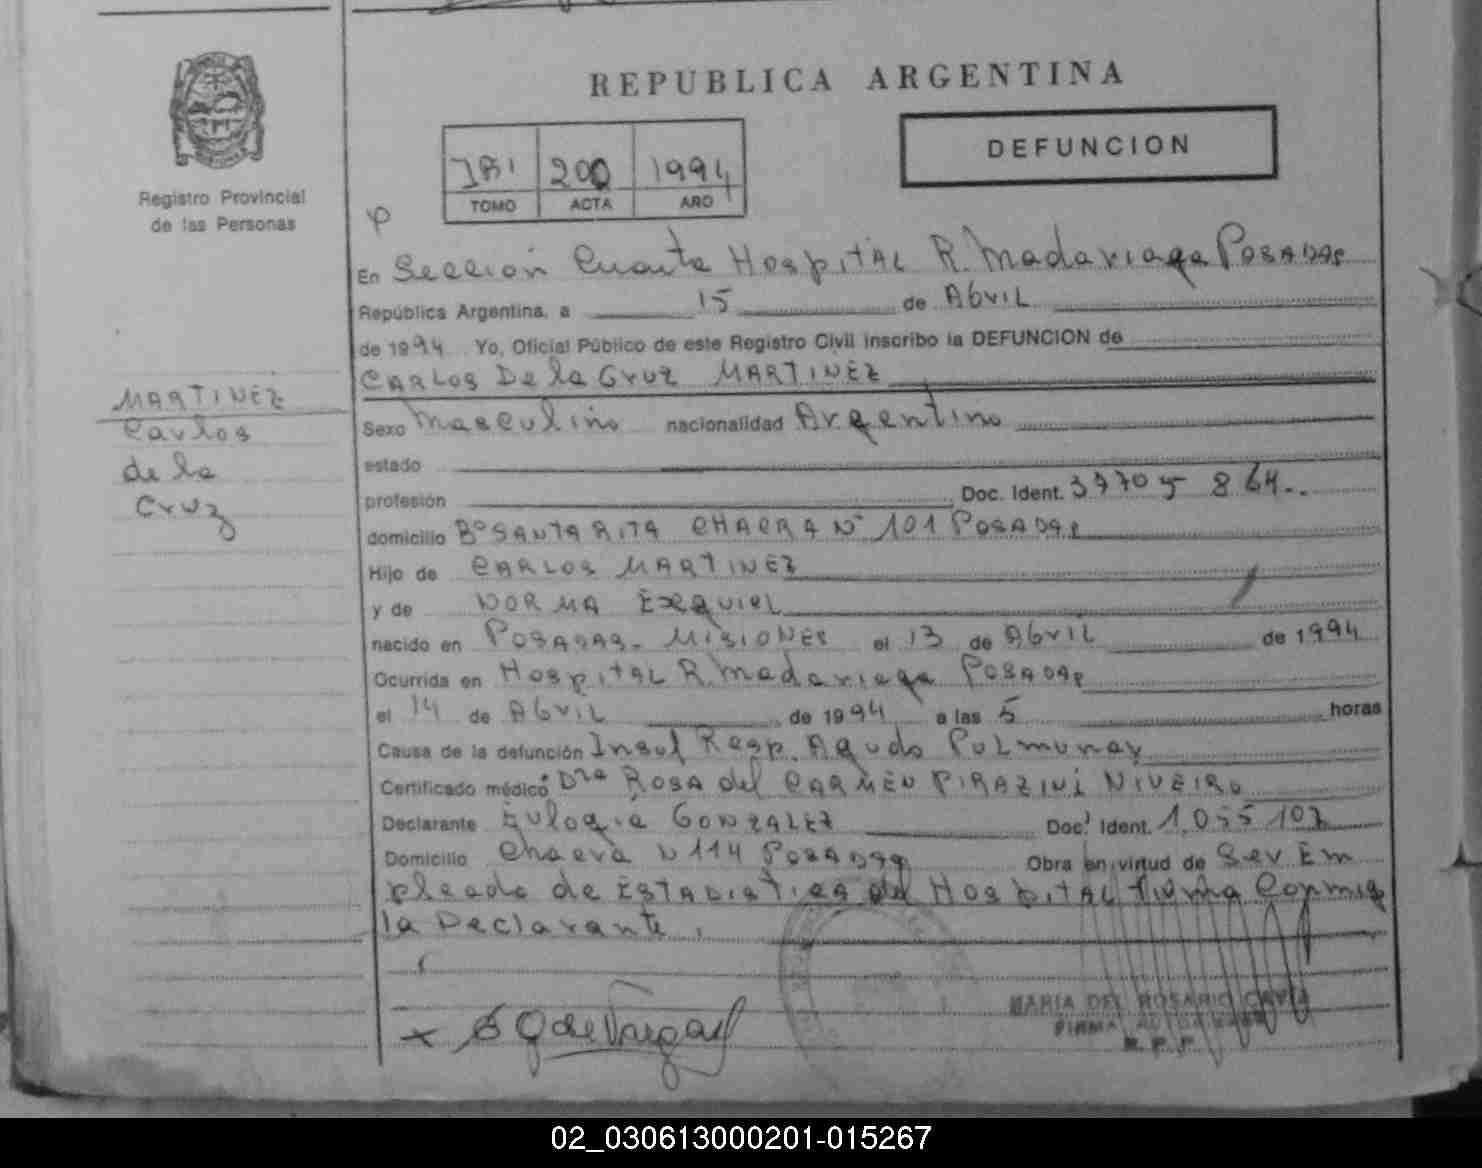 REPUBLICA ARGENTINA
DEFUNCION
200 1994
TOMO ACTA AÑO
Registro Provincial
de las Personas
En Sección Cuarta Hospital R. Madariaga POSADAS
República Argentina, a 15 de Abril
de 1994 Yo, Oficial Público de este Registro Civil inscribo la DEFUNCION de
CARLOS De la Cruz MARTINEZ
MARTINEZ
Carlos
de la
Cruz
Sexo Masculino nacionalidad Argentino
estado
profesión Doc. Ident. 37705 864..
domicilio Bº SANTA RITA CHACRA Nº 101 POSADAS
Hijo de CARLOS MARTINEZ
y de NORMA EZEQUIEL
nacido en POSADAS - MISIONES el 13 de Abril de 1994
Ocurrida en Hospital R. Madariaga POSADAS
el 14 de Abril de 1994 a las 5 horas
Causa de la defunción Insuf Resp. Aguda Pulmunar
Certificado médico Dra ROSA del CARMEN PIRAZINI NIVEIRO
Declarante Eulogia GONZALEZ Doc. Ident. 1.055 107
Domicilio Chacra N 114 POSADAS Obra en virtud de Ser Em
pleada de ESTADISTICA del HOSPITAL firma Conmigo
la Declarante.
MARIA DEL ROSARIO
FIRMA
R.P.P.
02_030613000201-015267